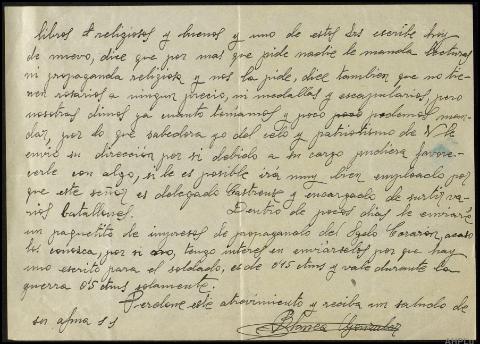 libros religiosos y buenos y uno de estos Srs escribe hoy
de nuevo, dice que por mas que pide nadie le manda lecturas
ni propaganda religiosa y nos la pide, dice tambien que no tie-
nen rosarios a ningun precio, ni medallas y escapularios, pero
nosotras dimos ya cuanto teniamos y poco podemos man-
dar, por lo que sabedora yo del celo y patriotismo de V le
envie su dirección por si debido a su cargo pudiera favore-
cerle con algo, si le es posible irá muy bien empleado por
que este señor es delegado Castrense y encargado de surtir va-
rios batallones. Dentro de pocos dias le enviaré
un paquetito de impresos de propaganda del Sgdo Corazón, acaso
los conozca, por si no, tengo interes en enviarselos por que hay
uno escrito para el soldado, es de 0'15 ctms y vale durante la
guerra 0'5 ctms solamente.
Perdone este atrevimiento y reciba un saludo de
su afma s s
Blanca Gonzalez